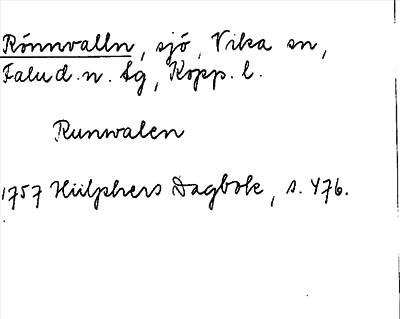 Rönnvalln, sjö, Vika sn,
Falu d.n. tg, Kopp. l.
Runwalen
1757 Hülphers Dagbok, s. 476.